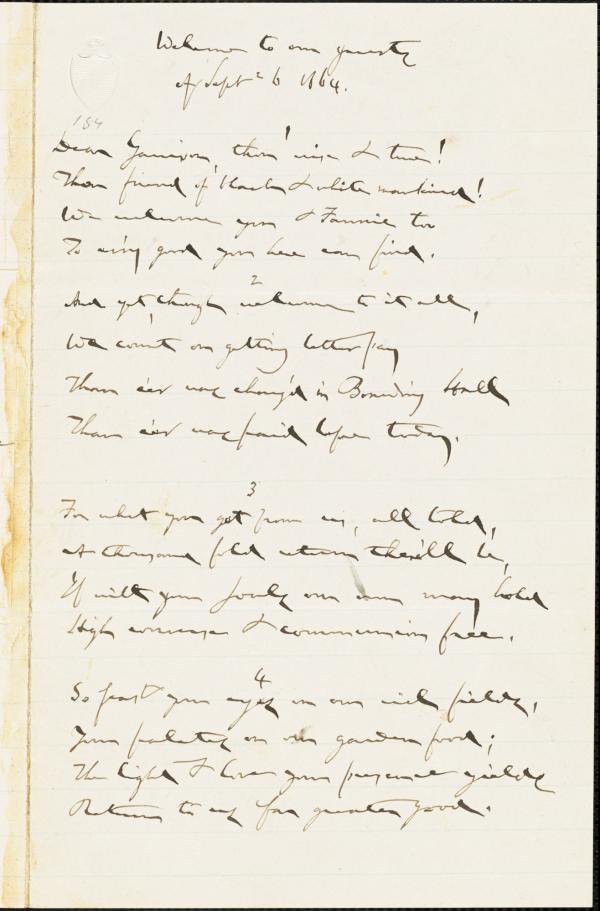 Welcome to our guests
of Sept 26 1864.
184
Dear Garrison, thou wise & true!
Thou friend of black & white mankind!
We welcome you & Fannie too
To ev'ry good you here can find.
2
And yet, though welcome to it all,
We count on getting better pay
Than e'er was charg'd in Boarding Hall
Than e'er was paid before today.
3
For what you get from us, all told,
A thousand fold return there'll be,
If with your souls our own may hold
High converse & communion free.
4
So feast your eyes on our rich fields,
Your palates on our garden food;
The light & love your presence yields
Return to us far greater good.